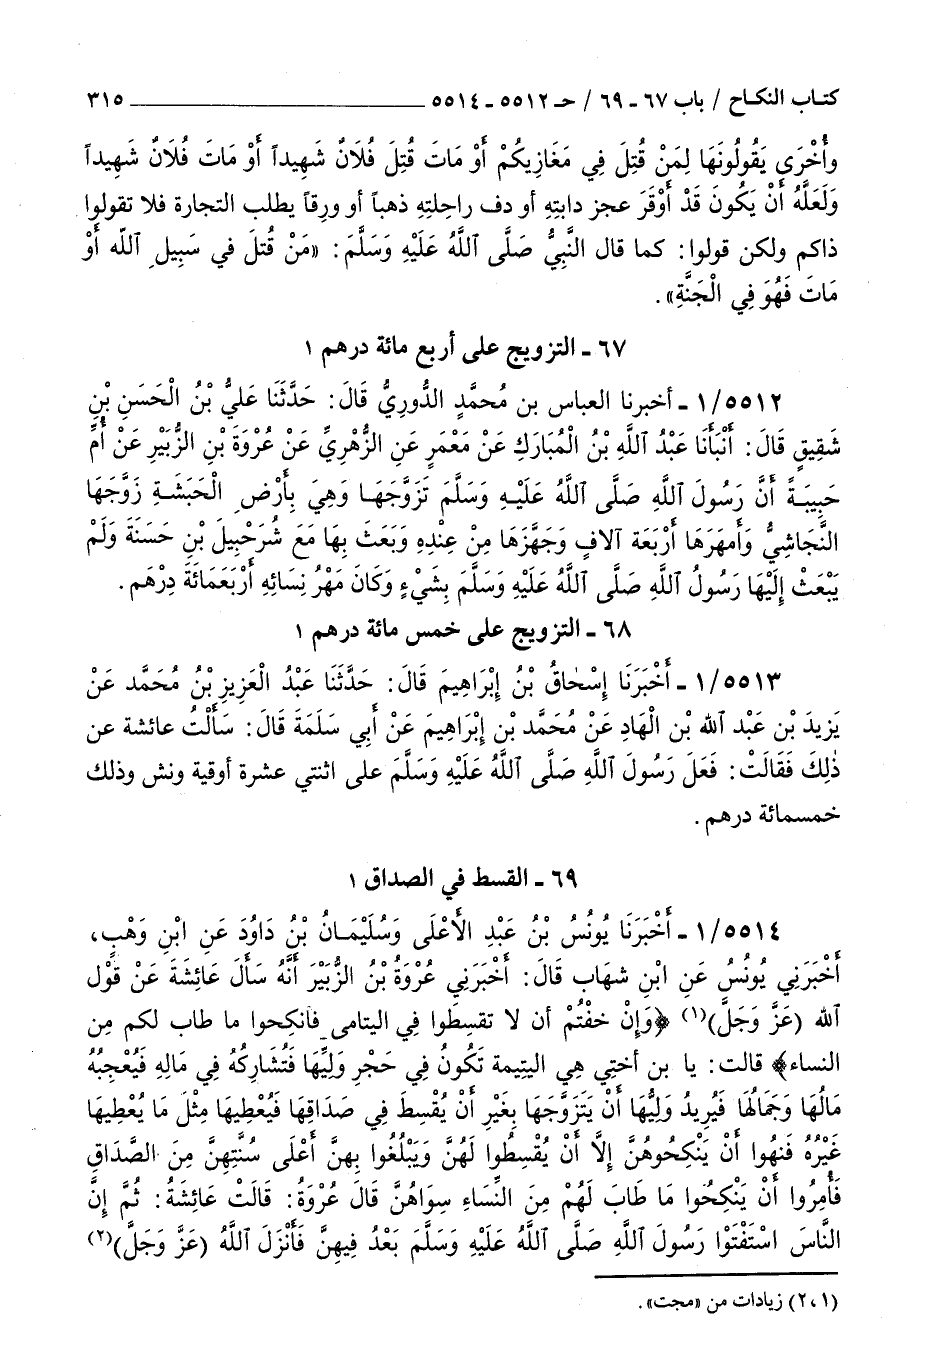 كتاب النكاح / باب ٦٧ ـ ٦٩ / حـ ٥٥١٢ ـ ٥٥١٤ ــــــــــــــــــــ ٣١٥
وأُخْرَى يَقُولُونَهَا لِمَنْ قُتِلَ فِي مَغَازِيكُمْ أَوْ مَاتَ قُتِلَ فُلَانٌ شَهِيداً أَوْ مَاتَ فُلَانٌ شَهِيداً
وَلَعَلَّهُ أَنْ يَكُونَ قَدْ أَوْقَرَ عجز دابتِهِ أو دف راحلتِهِ ذهباً أو ورِقاً يطلب التجارة فلا تقولوا
ذاكم ولكن قولوا: كما قال النَّبِيُّ صَلَّى ٱللَّهُ عَلَيْهِ وَسَلَّمَ: «مَنْ قُتلَ في سَبِيلِ ٱللّه أَوْ
مَاتَ فَهُوَ فِي الْجَنَّةِ».
٦٧ ـ التزويج على أربع مائة درهم ١
١/٥٥١٢ ـ أخبرنا العباس بن مُحمَّدٍ الدُّورِيُّ قَالَ: حَدَّثَنَا عَلِيُّ بْنُ الْحَسَنِ بْنِ
شَقِيقٍ قَالَ: أَنْبَأَنَا عَبْدُ ٱللَّهِ بْنُ الْمُبَارَكِ عَنْ مَعْمَرٍ عَنِ الزُّهْرِيِّ عَنْ عُرْوَةَ بْنِ الزُّبَيْرِ عَنْ أُمِّ
حَبِيبَةً أَنَّ رَسُولَ ٱللَّهِ صَلَّى ٱللَّهُ عَلَيْهِ وَسَلَّمَ تَزَوَّجَهَا وَهِيَ بِأَرْضِ الْحَبَشَةِ زَوَّجَهَا
النَّجَاشِيُّ وَأَمهَرَهَا أَرْبَعَةَ آلافٍ وَجَهَّزَهَا مِنْ عِنْدِهِ وَبَعَثَ بِهَا مَعَ شُرَحْبِيلَ بْنِ حَسَنَةَ وَلَمْ
يَبْعَثْ إِلَيْهَا رَسُولُ ٱللَّهِ صَلَّى ٱللَّهُ عَلَيْهِ وَسَلَّمَ بِشَيْءٍ وَكَانَ مَهْرُ نِسَائِهِ أَرْبَعَمائَةَ دِرْهَمٍ.
٦٨ ـ التزويج على خمس مائة درهم ١
١/٥٥١٣ ـ أَخْبَرَنَا إِسْحَاقُ بْنُ إِبْرَاهِيمَ قَالَ: حَدَّثَنَا عَبْدُ الْعَزِيزِ بْنُ مُحَمَّد عَنْ
يَزِيدَ بْنِ عَبْد ٱلله بْن الْهَادِ عَنْ مُحَمَّد بْنِ إِبْرَاهِيمَ عَنْ أَبِي سَلَمَةَ قَالَ: سَأَلْتُ عائشة عن
ذٰلِكَ فَقَالَتْ: فَعَلَ رَسُولَ ٱللَّهِ صَلَّى ٱللَّهُ عَلَيْهِ وَسَلَّمَ على اثنتي عشرة أوقية ونش وذلك
خمسمائة درهم.
٦٩ ـ القسط في الصداق ١
١/٥٥١٤ ـ أَخْبَرَنَا يُونُسُ بْنُ عَبْدِ الأَعْلَى وَسُلَيْمَانُ بْنُ دَاوُدَ عَنِ ابْنِ وَهْبٍ،
أَخْبَرَنِي يُونُسُ عَنِ ابْنِ شهَاب قَالَ: أَخْبَرَنِي عُرْوَةُ بْنُ الزُّبَيْرَ أَنَّهُ سَأَلَ عَائِشَةَ عَنْ قَوْل
ٱلله (عَزَّ وَجَلَّ)(١) ﴿وَإِنْ خفْتُمْ أن لا تقسِطُوا فِي اليتامى فٱنكِحوا ما طاب لكم مِن
النساء﴾ قالت: يا بن أختِي هِي اليتيمة تَكُونُ فِي حَجْرِ وَلِيِّهَا فَتُشَارِكُهُ فِي مَالِهِ فَيُعْجِبُهُ
مَالُهَا وَجَمَالُهَا فَيُرِيدُ وَلِيُّهَا أَنْ يَتَزَوَّجَهَا بِغَيْرِ أَنْ يُقْسِطَ فِي صَدَاقِهَا فَيُعْطِيهَا مِثْلَ مَا يُعْطِيهَا
غَيْرُهُ فَنُهُوا أَنْ يَنْكِحُوهُنَّ إِلَّا أَنْ يُقْسِطُوا لَهُنَّ وَيَبْلُغُوا بِهِنَّ أَعْلَى سُنَّتِهِنَّ مِنَ الصَّدَاقِ
فَأُمِرُوا أَنْ يَنْكِحُوا مَا طَابَ لَهُمْ مِنَ النِّسَاءِ سِوَاهُنَّ قَالَ عُرْوَةُ: قَالَتْ عَائِشَةُ: ثُمَّ إِنَّ
النَّاسَ اسْتَفْتَوْا رَسُولَ ٱللَّهِ صَلَّى ٱللَّهُ عَلَيْهِ وَسَلَّمَ بَعْدُ فِيهِنَّ فَأَنْزَلَ ٱللَّهُ (عَزَّ وَجَلَّ)(٢)
(١،٢) زيادات من «مجت».